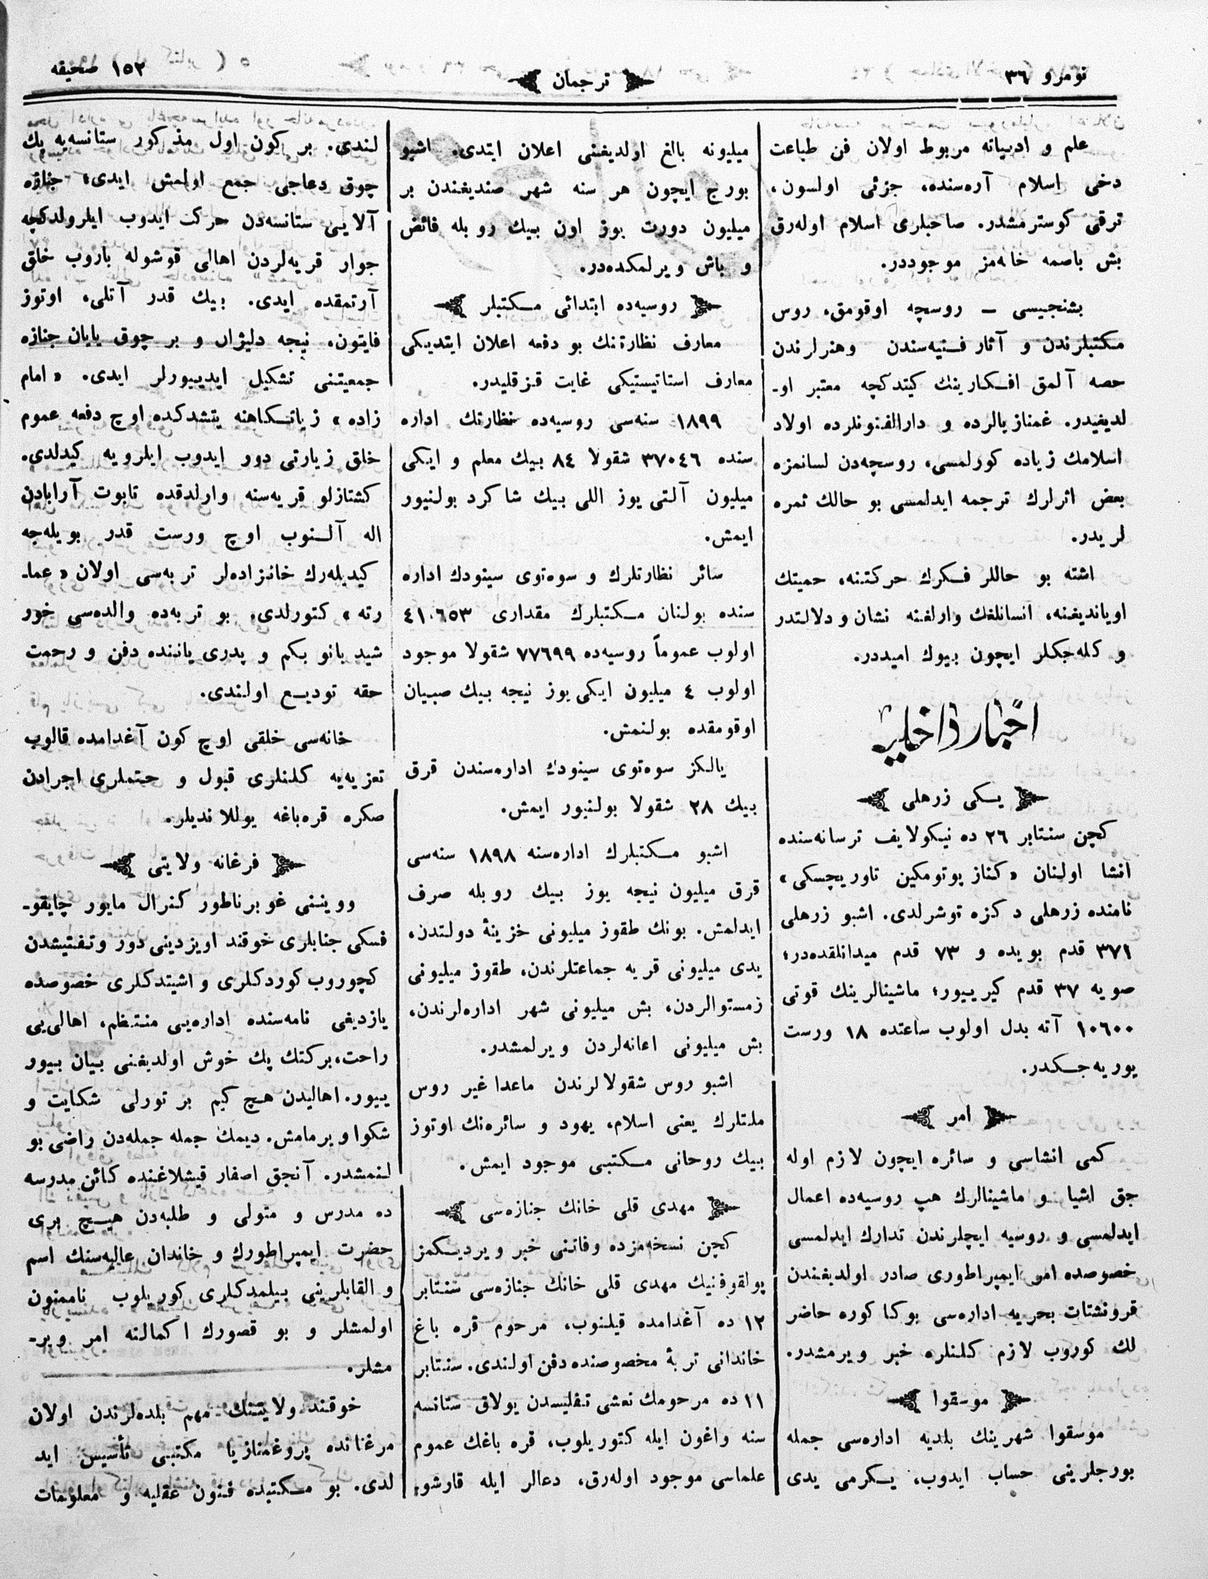 نومرو ٣٦
ترجمان
١٥٢ صحیفه
علم و ادبیاته مربوط اولان فن طباعت
دخی اسلام آره‌سنده، جزئی اولسون،
ترقی كوسترمشدر. صاحبلری اسلام اوله‌رق
بش باصمه خانه‌مز موجوددر.
بشنجیسی – روسچه اوقومق، روس
مكتبلرندن و آثار فنیه‌سندن وهنرلرندن
حصه آلمق افكارینك كیتدكچه معتبر او-
لدیغیدر. غمنازیالرده و دارالفنونلرده اولاد
اسلامك زیاده كورلمسی، روسچه‌دن لسانمزه
بعض اثرلرك ترجمه ایدلمسی بو حالك ثمره
لریدر.
اشته بو حاللر فكرك حركتنه، حمیتك
اویاندیغنه، انسانلغك وارلغنه نشان و دلالتدر
و كله‌جكلر ایچون بیوك امیددر.
اخبار داخلیه
یكی زرهلی
كچن سنتابر ٢٦ ده نیكولایف ترسانه‌سنده
انشا اولنان «كناز پوتومكین تاوریچسكی»
نامنده زرهلی دكزه توشرلدی. اشبو زرهلی
٣٧١ قدم بویده و ٧٣ قدم میدانلقده‌در؛
صویه ٣٧ قدم كیرییور؛ ماشینالرینك قوتی
١٠٦٠٠ آته بدل اولوب ساعتده ١٨ ورست
یوریه‌جكدر.
امر
كمی انشاسی و سائره ایچون لازم اوله
جق اشیا و ماشینالرك هپ روسیه‌ده اعمال
ایدلمسی و روسیه ایچلرندن تدارك ایدلمسی
خصوصده امر ایمپراطوری صادر اولدیغندن
قرونشتات بحریه اداره‌سی بوكا كوره حاضر
لك كوروب لازم كلنلره خبر ویرمشدر.
موسقوا
موسقوا شهرینك بلدیه اداره‌سی جمله
بورجلرینی حساب ایدوب، یكرمی یدی
میلیونه بالغ اولدیغنی اعلان ایتدی. اشبو
بورج ایچون هر سنه شهر صندیغندن بر
میلیون دورت یوز اون بیك روبله فائض
و باش ویرلمكده‌در.
روسیه‌ده ابتدائی مكتبلر
معارف نظارتنك بو دفعه اعلان ایتدیكی
معارف استاتیستیكی غایت قزقلیدر.
١٨٩٩ سنه‌سی روسیه‌ده نظارتك اداره
سنده ٣٧٠٤٦ شقولا ٨٤ بیك معلم و ایكی
میلیون آلتی یوز اللی بیك شاكرد بولنیور
ایمش.
سائر نظارتلرك و سوه‌توی سینودك اداره
سنده بولنان مكتبلرك مقداری ٤١٠٦٥٣
اولوب عموماً روسیه‌ده ٧٧٦٩٩ شقولا موجود
اولوب ٤ میلیون ایكی یوز نیجه بیك صبیان
اوقومقده بولنمش.
یالكز سوه‌توی سینودك اداره‌سندن قرق
بیك ٢٨ شقولا بولنیور ایمش.
اشبو مكتبلرك اداره‌سنه ١٨٩٨ سنه‌سی
قرق میلیون نیجه یوز بیك روبله صرف
ایدلمش. بونك طقوز میلیونی خزینهٔ دولتدن،
یدی میلیونی قریه جماعتلرندن، طقوز میلیونی
زمستوالردن، بش میلیونی شهر اداره‌لرندن،
بش میلیونی اعانه‌لردن ویرلمشدر.
اشبو روس شقولالرندن ماعدا غیر روس
ملتلرك یعنی اسلام، یهود و سائره‌نك اوتوز
بیك روحانی مكتبی موجود ایمش.
مهدی قلی خانك جنازه‌سی
كچن نسخه‌مزده وفاتنی خبر ویردیكمز
پولقوفنیك مهدی قلی خانك جنازه‌سی سنتابر
١٢ ده آغدامده قیلنوب، مرحوم قره باغ
خاندانی تربهٔ مخصوصنده دفن اولندی. سنتابر
١١ ده مرحومك نعشی تفلیسدن یولاق ستانسه
سنه واغون ایله كتوریلوب، قره باغك عموم
علماسی موجود اوله‌رق، دعالر ایله قارشو
لندی. بر كون اول مذكور ستانسه‌یه پك
چوق دعاجی جمع اولمش ایدی؛ جنازه
آلایی ستانسه‌دن حركت ایدوب ایلرولدكچه
جوار قریه‌لردن اهالی قوشوله باروب خلق
آرتمقده ایدی. بیك قدر آتلی، اوتوز
فایتون، نیجه دلیژان و بر چوق پایان جنازه
جمعیتنی تشكیل ایدییورلر ایدی. «امام
زاده» زیاتكاهنه یتشدكده اوچ دفعه عموم
خلق زیارتی دور ایدوب ایلرویه كیدلدی.
كشتازلو قریه‌سنه وارلدقده تابوت آرابادن
اله آلنوب اوچ ورست قدر بویله‌جه
كیدیله‌رك خانزاده‌لر تربه‌سی اولان «عما-
رته» كتورلدی. بو تربه‌ده والده‌سی خور
شید بانو بكم و پدری یاننده دفن و رحمت
حقه تودیع اولندی.
خانه‌سی خلقی اوچ كون آغدامده قالوب
تعزیه‌یه كلنلری قبول و ختملری اجرادن
صكره قره‌باغه یوللاندیلر.
فرغانه ولایتی
وویننی غوبرناطور كنرال مایور چایقو-
فسكی جنابلری خوقند اویزدینی دور وتفتیشدن
كچوروب كوردكلری و اشیتدكلری خصوصده
یازدیغی نامه‌سنده اداره‌یی منتظم، اهالی‌یی
راحت، بركتك پك خوش اولدیغنی بیان بیور
ییور. اهالیدن هیچ كیم بر تورلی شكایت و
شكوا ویرمامش. دیمك جمله جمله‌دن راضی بو
لنمشدر. آنجق اصفار قیشلاغنده كائن مدرسه
ده مدرس و متولی و طلبه‌دن هیچ بری
حضرت ایمپراطورك و خاندان عالیه‌سنك اسم
و القابلرینی بیلمدكلری كوریلوب ناممنون
اولمشلر و بو قصورك اكمالنه امر ویر-
مشلر.
خوقند ولایتنك مهم بلده‌لرندن اولان
مرغانده پروغمنازیا مكتبی تأسیس اید
لدی. بو مكتبده فنون عقلیه و معلومات